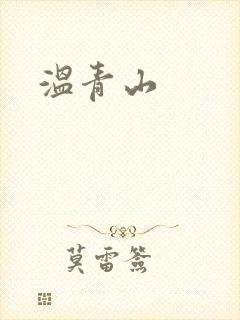 温青山
莫雷签